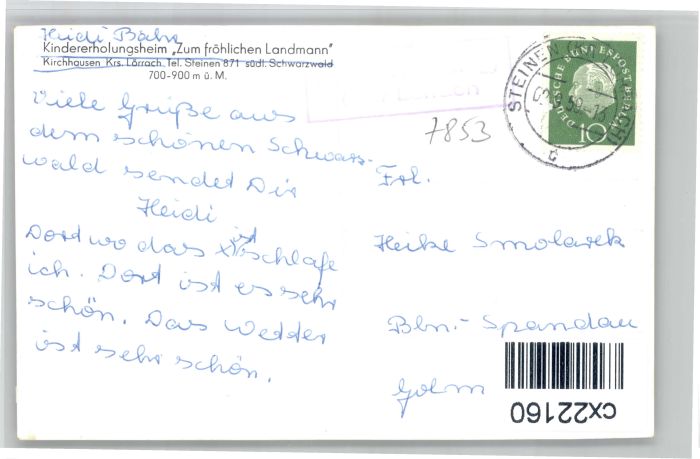 Heidi Bahr
Kindererholungsheim „Zum fröhlichen Landmann"
Kirchhausen Krs. Lörrach. Tel. Steinen 871 südl. Schwarzwald
700-900 m ü. M.
Viele Grüße aus
dem schönen Schwarz-
wald sendet Dir
Heidi
Dort wo das x ist schlafe
ich. Dort ist es sehr
schön. Das Wetter
ist sehr schön.
7853
STEINEN
DEUTSCHE BUNDESPOST BERLIN
10
Frl.
Heike Smolarek
Bln.-Spandau
cx22160